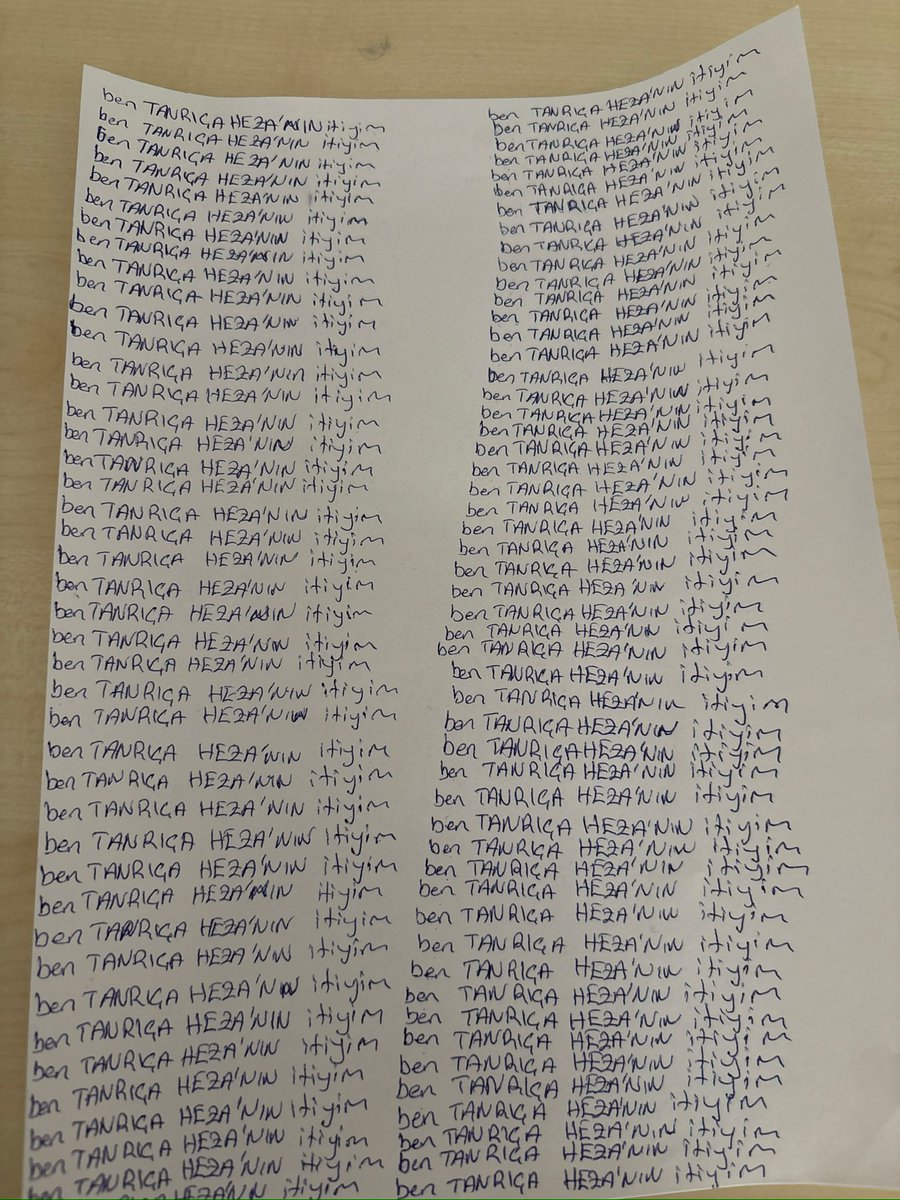 ben TANRIÇA HEZA'NIN itiyim
ben TANRIÇA HEZA'NIN itiyim
ben TANRIÇA HEZA'NIN itiyim
ben TANRIÇA HEZA'NIN itiyim
ben TANRIÇA HEZA'NIN itiyim
ben TANRIÇA HEZA'NIN itiyim
ben TANRIÇA HEZA'NIN itiyim
ben TANRIÇA HEZA'NIN itiyim
ben TANRIÇA HEZA'NIN itiyim
ben TANRIÇA HEZA'NIN itiyim
ben TANRIÇA HEZA'NIN itiyim
ben TANRIÇA HEZA'NIN itiyim
ben TANRIÇA HEZA'NIN itiyim
ben TANRIÇA HEZA'NIN itiyim
ben TANRIÇA HEZA'NIN itiyim
ben TANRIÇA HEZA'NIN itiyim
ben TANRIÇA HEZA'NIN itiyim
ben TANRIÇA HEZA'NIN itiyim
ben TANRIÇA HEZA'NIN itiyim
ben TANRIÇA HEZA'NIN itiyim
ben TANRIÇA HEZA'NIN itiyim
ben TANRIÇA HEZA'NIN itiyim
ben TANRIÇA HEZA'NIN itiyim
ben TANRIÇA HEZA'NIN itiyim
ben TANRIÇA HEZA'NIN itiyim
ben TANRIÇA HEZA'NIN itiyim
ben TANRIÇA HEZA'NIN itiyim
ben TANRIÇA HEZA'NIN itiyim
ben TANRIÇA HEZA'NIN itiyim
ben TANRIÇA HEZA'NIN itiyim
ben TANRIÇA HEZA'NIN itiyim
ben TANRIÇA HEZA'NIN itiyim
ben TANRIÇA HEZA'NIN itiyim
ben TANRIÇA HEZA'NIN itiyim
ben TANRIÇA HEZA'NIN itiyim
ben TANRIÇA HEZA'NIN itiyim
ben TANRIÇA HEZA'NIN itiyim
ben TANRIÇA HEZA'NIN itiyim
ben TANRIÇA HEZA'NIN itiyim
ben TANRIÇA HEZA'NIN itiyim
ben TANRIÇA HEZA'NIN itiyim
ben TANRIÇA HEZA'NIN itiyim
ben TANRIÇA HEZA'NIN itiyim
ben TANRIÇA HEZA'NIN itiyim
ben TANRIÇA HEZA'NIN itiyim
ben TANRIÇA HEZA'NIN itiyim
ben TANRIÇA HEZA'NIN itiyim
ben TANRIÇA HEZA'NIN itiyim
ben TANRIÇA HEZA'NIN itiyim
ben TANRIÇA HEZA'NIN itiyim
ben TANRIÇA HEZA'NIN itiyim
ben TANRIÇA HEZA'NIN itiyim
ben TANRIÇA HEZA'NIN itiyim
ben TANRIÇA HEZA'NIN itiyim
ben TANRIÇA HEZA'NIN itiyim
ben TANRIÇA HEZA'NIN itiyim
ben TANRIÇA HEZA'NIN itiyim
ben TANRIÇA HEZA'NIN itiyim
ben TANRIÇA HEZA'NIN itiyim
ben TANRIÇA HEZA'NIN itiyim
ben TANRIÇA HEZA'NIN itiyim
ben TANRIÇA HEZA'NIN itiyim
ben TANRIÇA HEZA'NIN itiyim
ben TANRIÇA HEZA'NIN itiyim
ben TANRIÇA HEZA'NIN itiyim
ben TANRIÇA HEZA'NIN itiyim
ben TANRIÇA HEZA'NIN itiyim
ben TANRIÇA HEZA'NIN itiyim
ben TANRIÇA HEZA'NIN itiyim
ben TANRIÇA HEZA'NIN itiyim
ben TANRIÇA HEZA'NIN itiyim
ben TANRIÇA HEZA'NIN itiyim
ben TANRIÇA HEZA'NIN itiyim
ben TANRIÇA HEZA'NIN itiyim
ben TANRIÇA HEZA'NIN itiyim
ben TANRIÇA HEZA'NIN itiyim
ben TANRIÇA HEZA'NIN itiyim
ben TANRIÇA HEZA'NIN itiyim
ben TANRIÇA HEZA'NIN itiyim
ben TANRIÇA HEZA'NIN itiyim
ben TANRIÇA HEZA'NIN itiyim
ben TANRIÇA HEZA'NIN itiyim
ben TANRIÇA HEZA'NIN itiyim
ben TANRIÇA HEZA'NIN itiyim
ben TANRIÇA HEZA'NIN itiyim
ben TANRIÇA HEZA'NIN itiyim
ben TANRIÇA HEZA'NIN itiyim
ben TANRIÇA HEZA'NIN itiyim
ben TANRIÇA HEZA'NIN itiyim
ben TANRIÇA HEZA'NIN itiyim
ben TANRIÇA HEZA'NIN itiyim
ben TANRIÇA HEZA'NIN itiyim
ben TANRIÇA HEZA'NIN itiyim
ben TANRIÇA HEZA'NIN itiyim